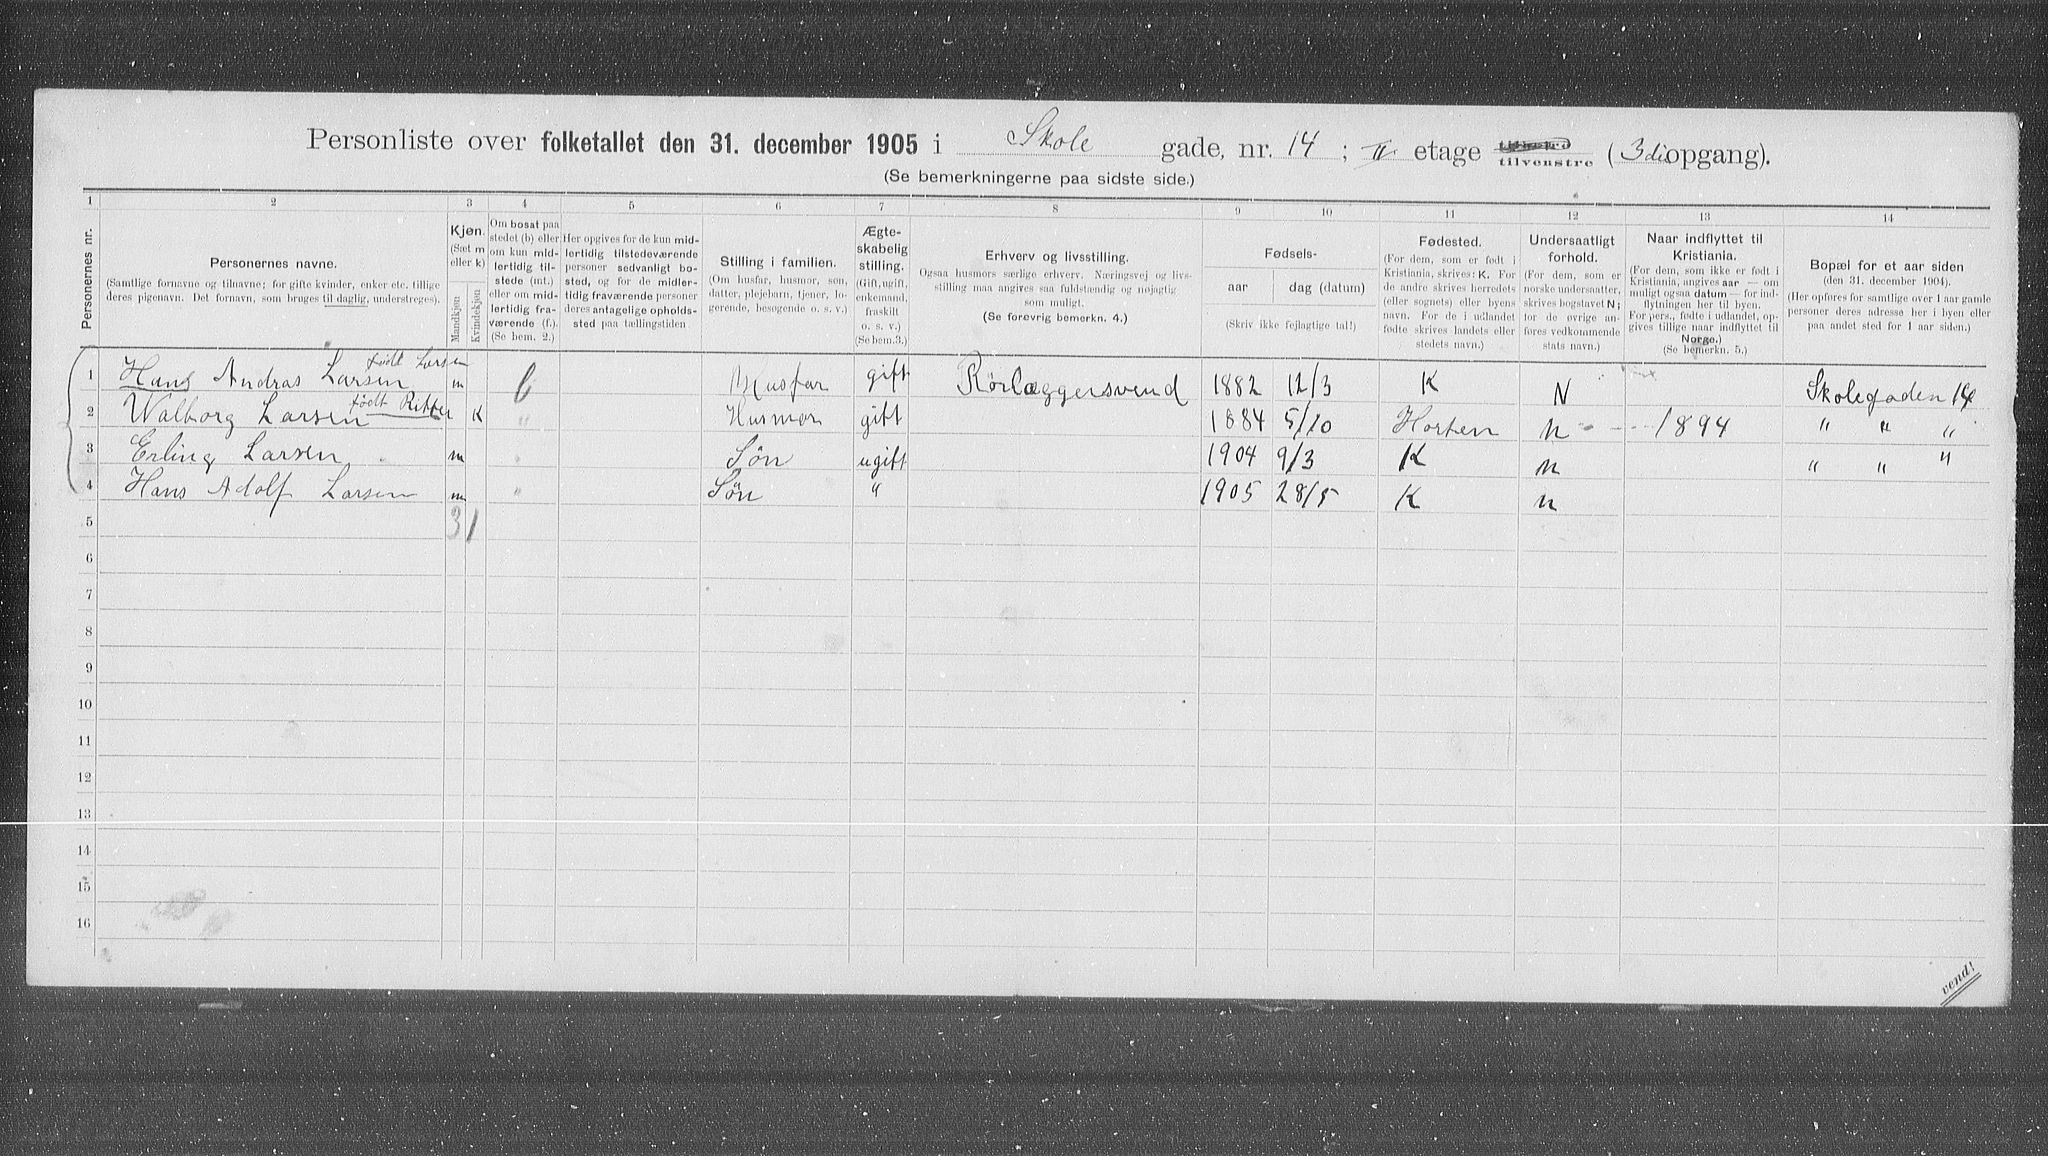 Personliste over folketallet den 31. december 1905 i Skole gade, nr. 14 ; II etage tilvenstre (3die opgang).
(Se bemerkningerne paa sidste side.)
1 2 3 4 5 6 7 8 9 10 11 12 13 14
Personernes nr.
Personernes navne.
(Samtlige fornavne og tilnavne; for gifte kvinder, enker etc. tillige
deres pigenavn. Det fornavn, som bruges til daglig, understreges).
Kjøn.
(Sæt m
eller k)
Mandkjøn
Kvindekjøn
Om bosat paa
stedet (b) eller
om kun mid-
lertidig til-
stede (mt.)
eller om mid-
lertidig fra-
værende (f.).
(Se bem. 2.)
Her opgives for de kun mid-
lertidig tilstedeværende
personer sedvanligt bo-
sted, og for de midler-
tidig fraværende personer
deres antagelige opholds-
sted paa tællingstiden
Stilling i familien.
(Om husfar, husmor, søn,
datter, plejebarn, tjener, lo-
gerende, besøgende o. s. v.)
Ægte-
skabelig
stilling.
(Gift, ugift,
enkemand,
fraskilt
o. s. v.)
(Se bem.3.)
Erhverv og livsstilling.
Ogsaa husmors særlige erhverv. Næringsvej og livs-
stilling maa angives saa fuldstændig og nøjagtig
som muligt.
(Se forøvrig bemerkn. 4.)
Fødsels-
aar
dag (datum)
(Skriv ikke fejlagtige tal!)
Fødested.
(For dem, som er født i
Kristiania, skrives: K. For
de andre skrives herredets
(eller sognets) eller byens
navn. For de i udlandet
fødte skrives landets eller
stedets navn.)
Undersaatligt
forhold.
(For dem, som er
norske undersaatter,
skrives bogstavet N;
for de øvrige an-
føres vedkommende
stats navn.)
Naar indflyttet til
Kristiania.
(For dem, som ikke er født i
Kristiania, angives aar — om
muligt ogsaa datum — for ind-
flytningen her til byen.
For pers., fødte i udlandet, op-
gives tillige naar indflyttet til
Norge.)
(Se bemerkn. 5.)
Bopæl for et aar siden
(den 31. december 1904).
(Her opføres for samtlige over 1 aar gamle
personer deres adresse her i byen eller
paa andet sted for 1 aar siden.)
1 Hans Andras Larsen født Larsen m b Husfar gift Rörlæggersvend 1882 12/3 K N Skolegaden 14
2 Walborg Larsen født Ritter K " Husmor gift 1884 5/10 Horten n 1894 " " "
3 Erling Larsen m " Søn ugift 1904 9/3 K n " " "
4 Hans Adolf Larsen m " Søn " 1905 28/5 K n
5 3 1
6
7
8
9
10
11
12
13
14
15
16
vend!